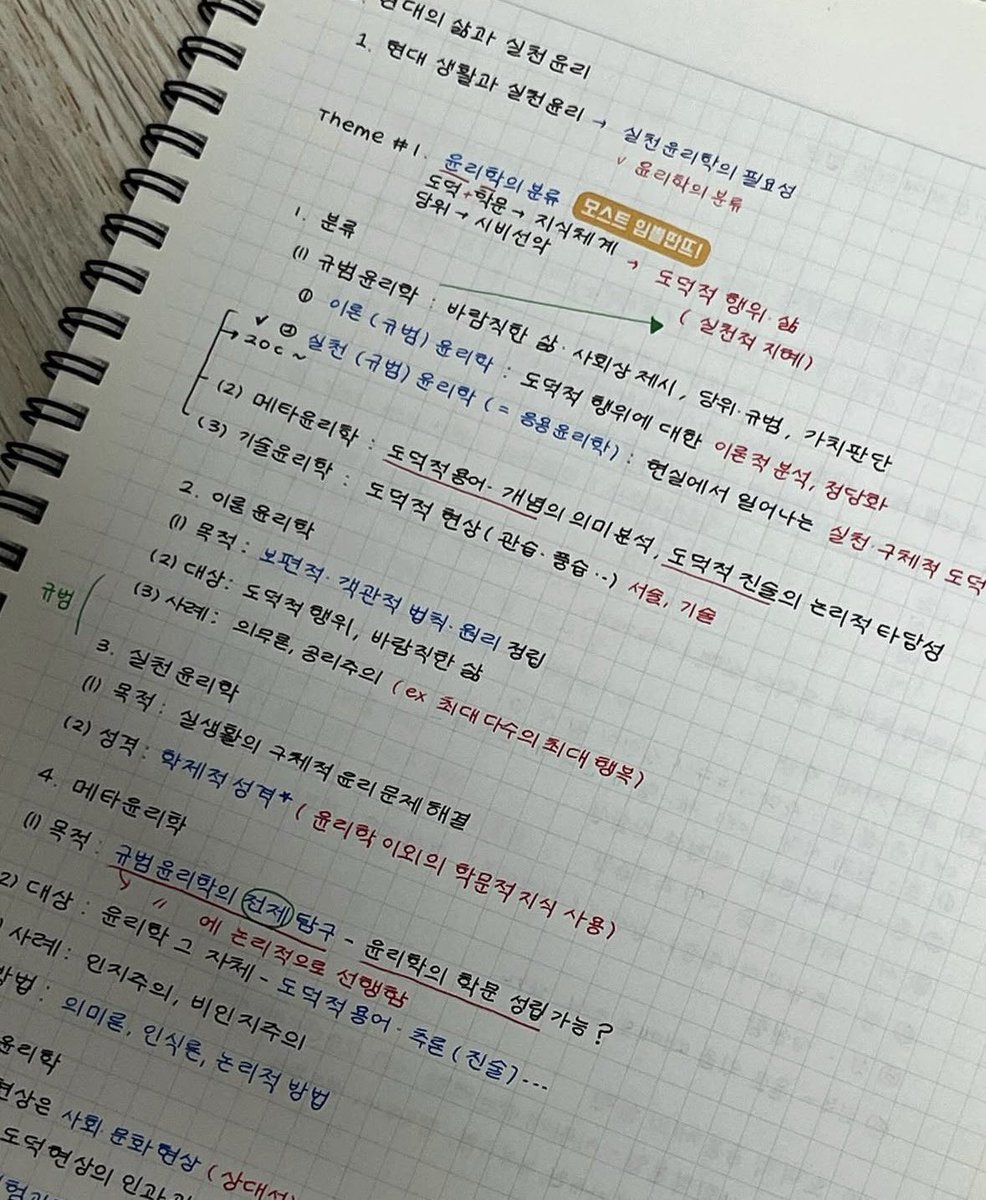 현대의 삶과 실천윤리
1. 현대 생활과 실천윤리 → 실천윤리학의 필요성
v 윤리학의 분류
Theme #1. 윤리학의 분류 모스트 임뽈딴뜨!
도덕+학문 → 지식체계 → 도덕적 행위·삶
당위 → 시비선악 (실천적 지혜)
1. 분류
(1) 규범윤리학 : 바람직한 삶·사회상 제시, 당위·규범, 가치판단
① 이론(규범) 윤리학 : 도덕적 행위에 대한 이론적 분석, 정당화
v ② 실천(규범) 윤리학 (= 응용윤리학) : 현실에서 일어나는 실천·구체적 도덕
→ 20c ~
(2) 메타윤리학 : 도덕적용어·개념의 의미분석, 도덕적 진술의 논리적 타당성
(3) 기술윤리학 : 도덕적 현상(관습·풍습..) 서술, 기술
2. 이론윤리학
(1) 목적 : 보편적·객관적 법칙·원리 정립
규범
(2) 대상 : 도덕적 행위, 바람직한 삶
(3) 사례 : 의무론, 공리주의 (ex 최대다수의 최대행복)
3. 실천윤리학
(1) 목적 : 실생활의 구체적 윤리문제 해결
(2) 성격 : 학제적 성격* (윤리학 이외의 학문적 지식 사용)
4. 메타윤리학
(1) 목적 : 규범윤리학의 전제 탐구 - 윤리학의 학문 성립 가능?
〃 에 논리적으로 선행함
2) 대상 : 윤리학 그 자체 - 도덕적용어·추론(진술)...
) 사례 : 인지주의, 비인지주의
방법 : 의미론, 인식론, 논리적 방법
윤리학
현상은 사회 문화현상 (상대성)
도덕현상의 인과